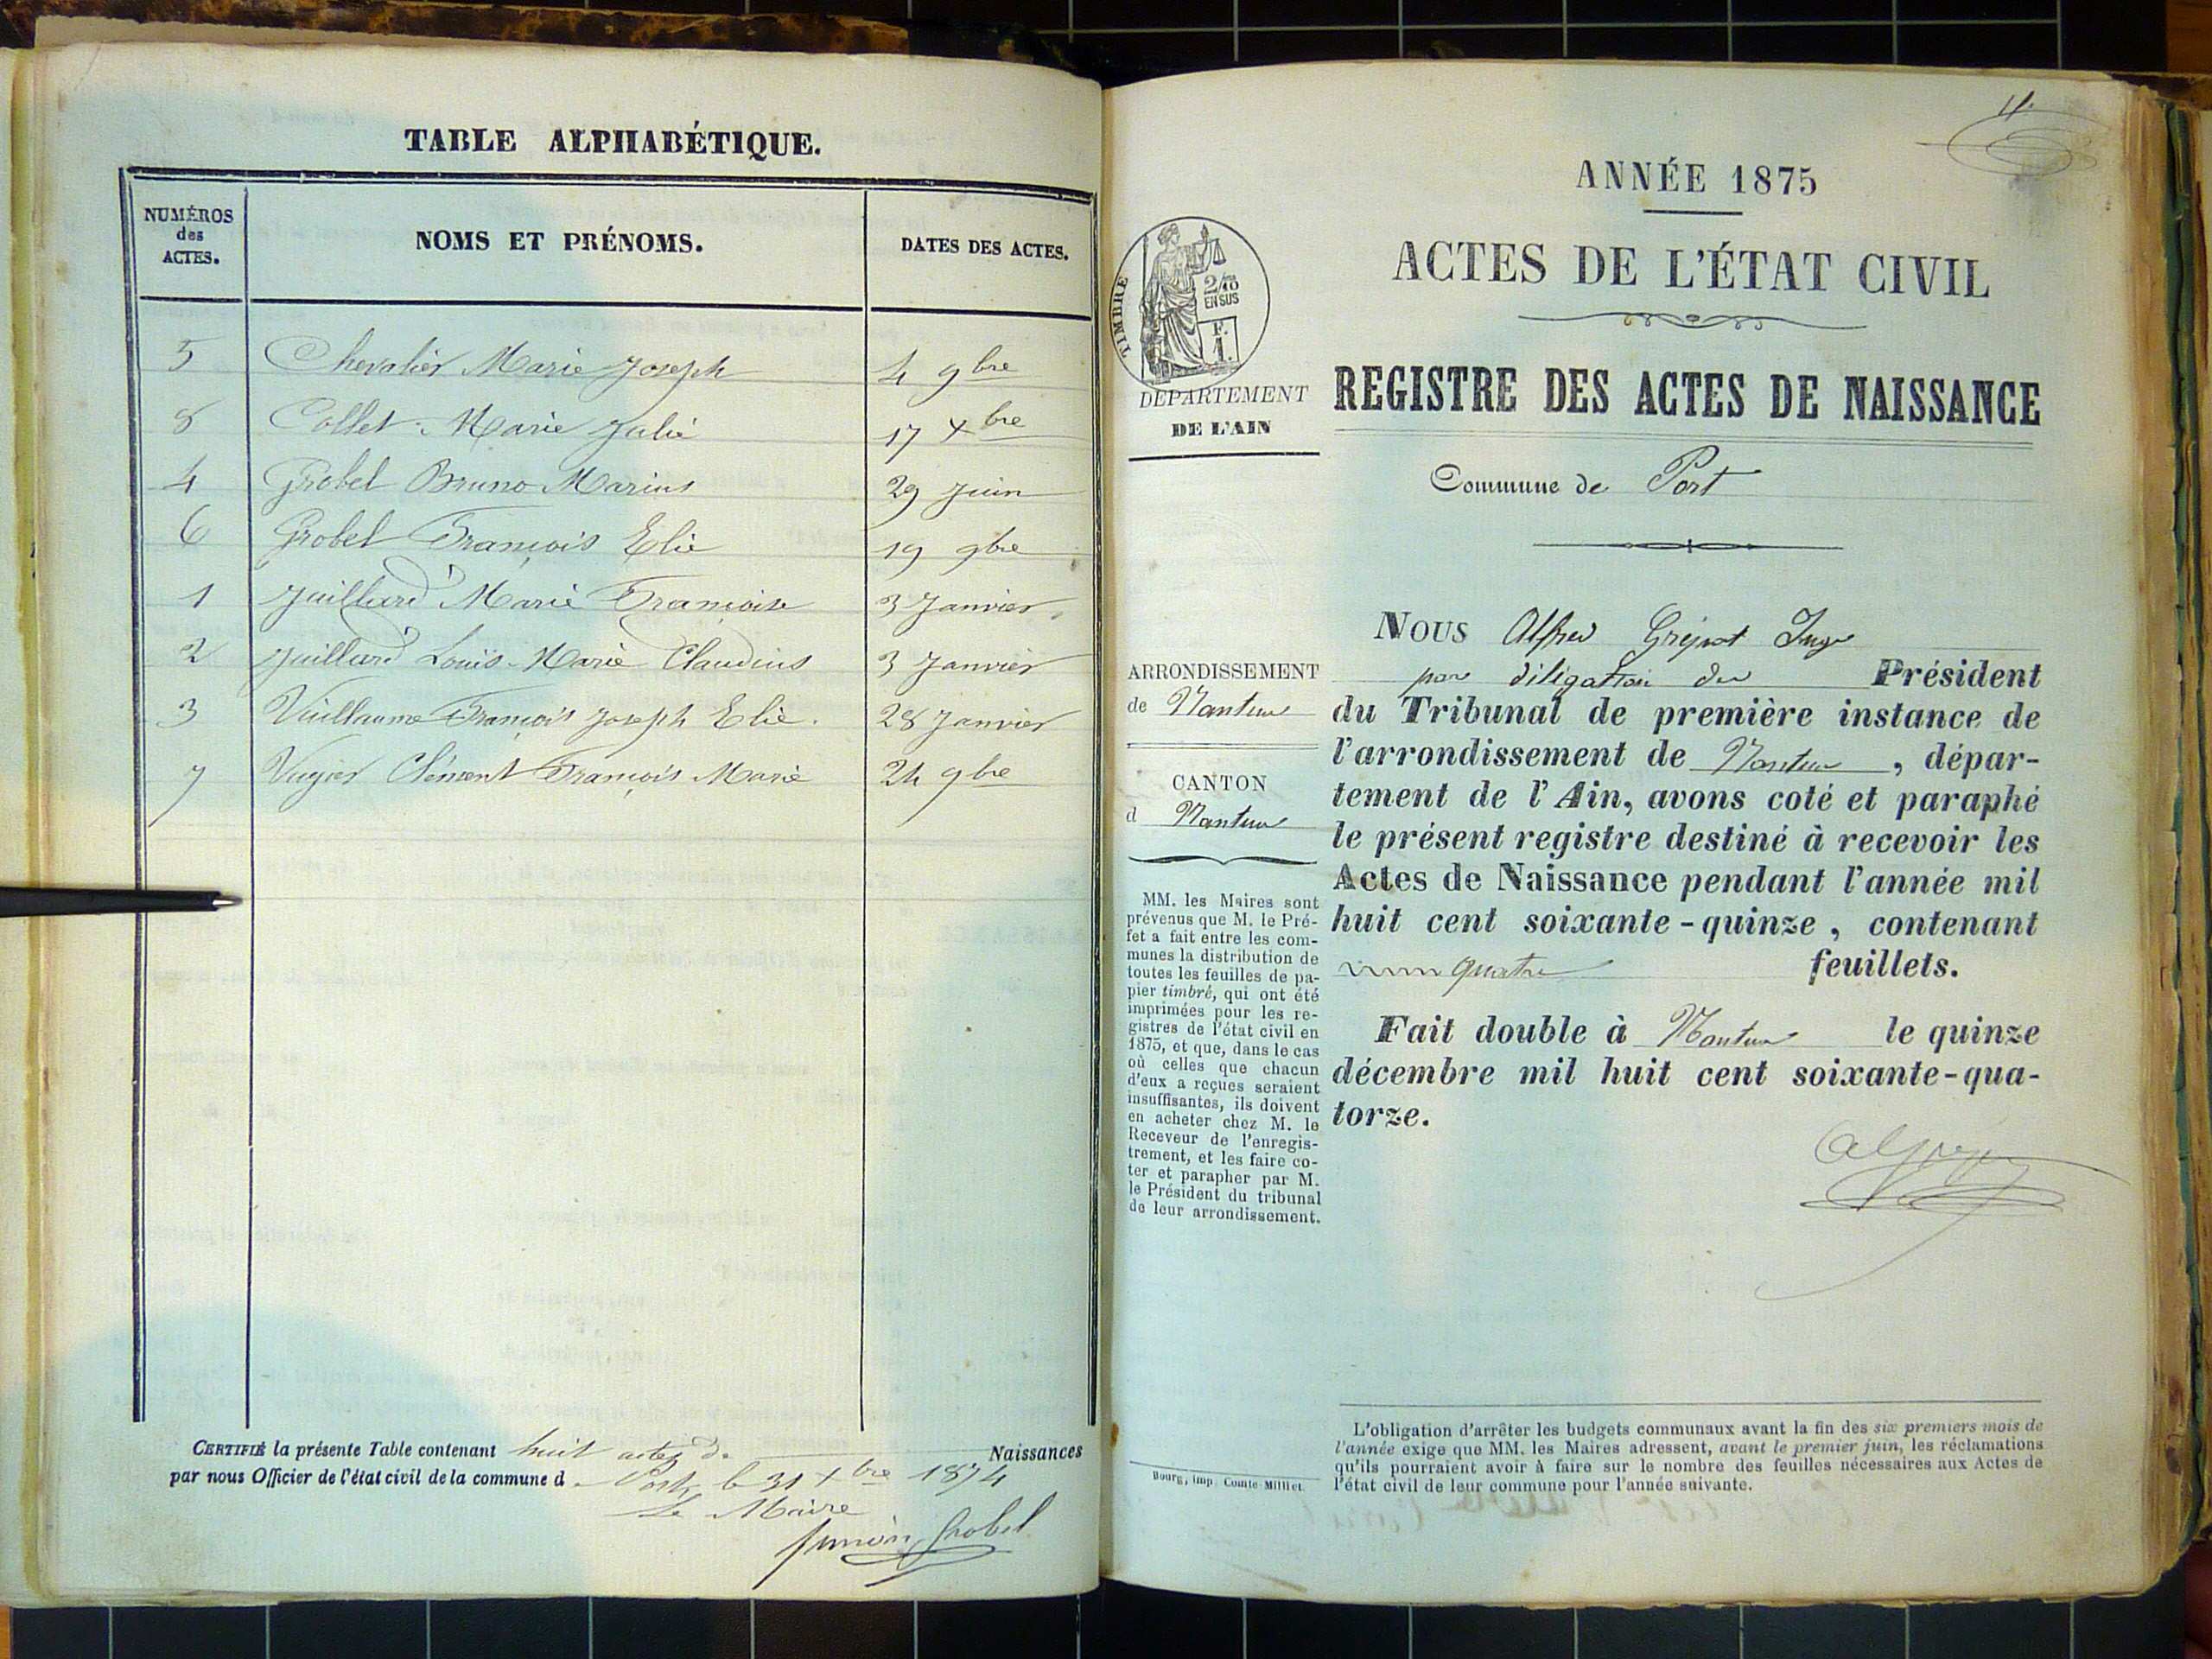 TABLE ALPHABÉTIQUE.
NUMÉROS
des
ACTES.
NOMS ET PRÉNOMS.
DATES DES ACTES.
5 Chevalier Marie Joseph 4 9bre
8 Collet Marie Julie 17 Xbre
4 Grobel Bruno Marius 29 Juin
6 Grobel François Elie 19 9bre
1 Juillard Marie Françoise 3 Janvier
2 Juillard Louis Marie Claudius 3 Janvier
3 Vuillaume François Joseph Elie. 28 Janvier
7 Vugier Clément François Marie 24 9bre
CERTIFIÉ la présente Table contenant huit actes de Naissances
par nous Officier de l'état civil de la commune d Port, le 31 Xbre 1874
Le Maire
Grobel
ANNÉE 1875
ACTES DE L'ÉTAT CIVIL
REGISTRE DES ACTES DE NAISSANCE
Commune de Port
TIMBRE
2/10
EN SUS
F.
1.
DÉPARTEMENT
DE L'AIN
ARRONDISSEMENT
de Nantua
CANTON
d Nantua
MM. les Maires sont
prévenus que M. le Pré-
fet a fait entre les com-
munes la distribution de
toutes les feuilles de pa-
pier timbré, qui ont été
imprimées pour les re-
gistres de l'état civil en
1875, et que, dans le cas
où celles que chacun
d'eux a reçues seraient
insuffisantes, ils doivent
en acheter chez M. le
Receveur de l'enregis-
trement, et les faire co-
ter et parapher par M.
le Président du tribunal
de leur arrondissement.
Bourg, imp. Comte-Milliet.
NOUS Alfred Juge
par délégation du Président
du Tribunal de première instance de
l'arrondissement de Nantua, dépar-
tement de l'Ain, avons coté et paraphé
le présent registre destiné à recevoir les
Actes de Naissance pendant l'année mil
huit cent soixante-quinze, contenant
quatre feuillets.
Fait double à Nantua le quinze
décembre mil huit cent soixante-qua-
torze.
L'obligation d'arrêter les budgets communaux avant la fin des six premiers mois de
l'année exige que MM. les Maires adressent, avant le premier juin, les réclamations
qu'ils pourraient avoir à faire sur le nombre des feuilles nécessaires aux Actes de
l'état civil de leur commune pour l'année suivante.